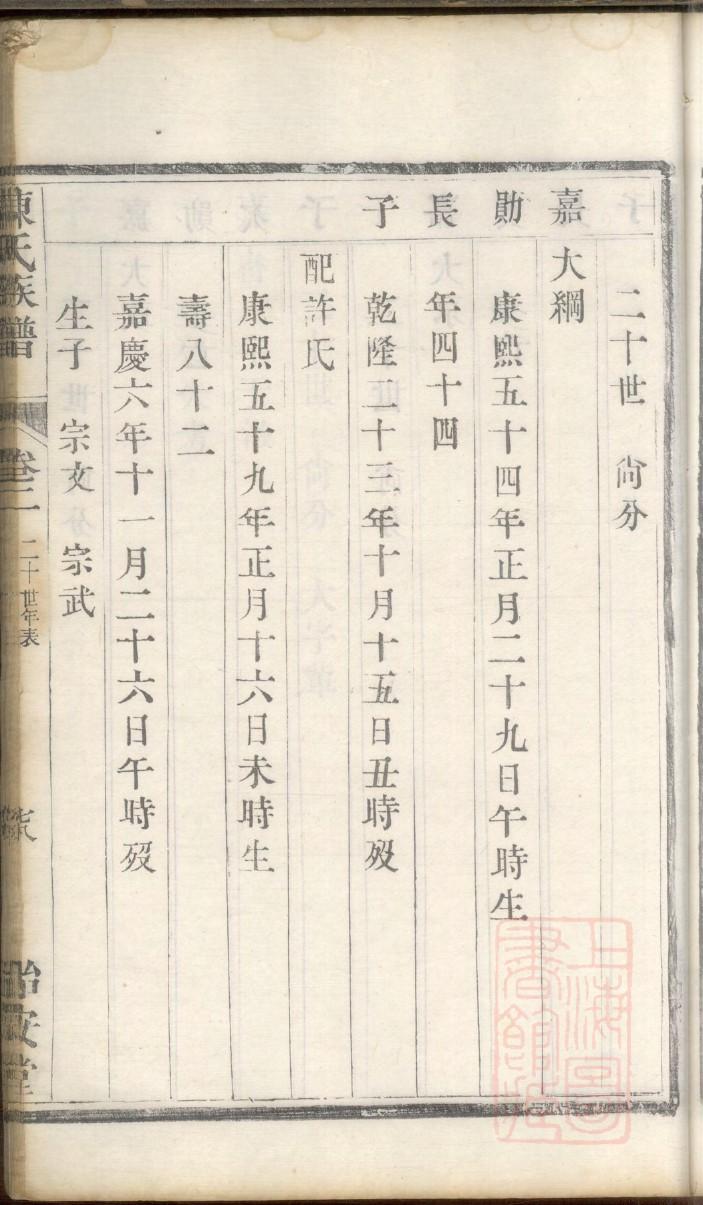 二十世 尙分
嘉勛長子
大綱
康熙五十四年正月二十九日午時生
年四十四
乾隆二十三年十月十五日丑時歿
配許氏
康熙五十九年正月十六日未時生
壽八十二
嘉慶六年十一月二十六日午時歿
生子 宗文 宗武
陳氏族譜 卷二 二十世年表
怡安堂
上海圖書館藏